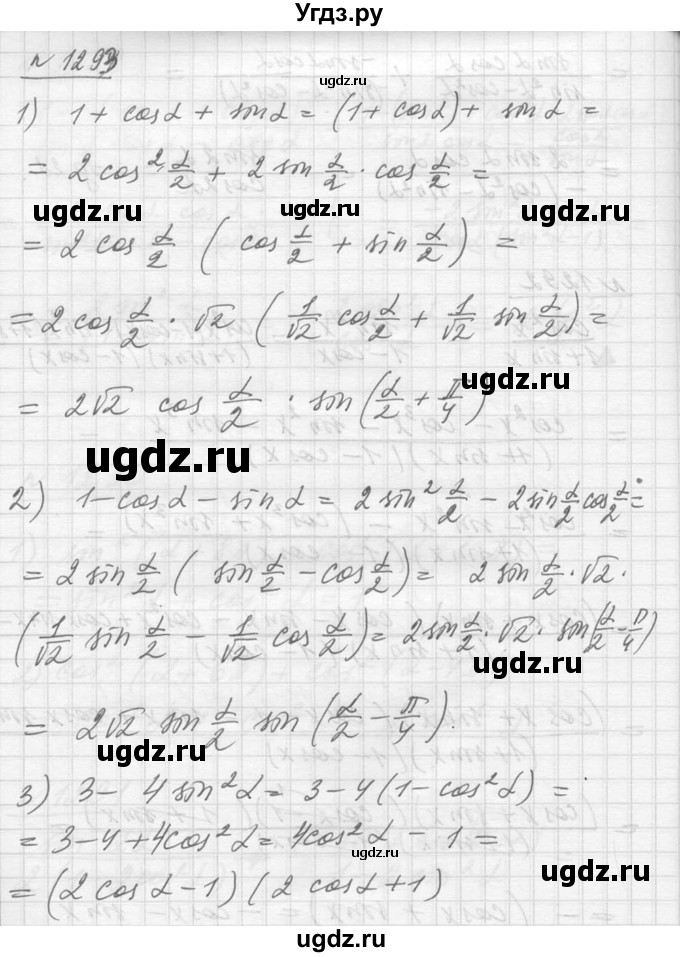 Угдз.ру
N 1293
1) 1 + cos α + sin α = (1 + cos α) + sin α =
= 2 cos² α/2 + 2 sin α/2 · cos α/2 =
ugdz.ru ugdz.ru ugdz.ru
= 2 cos α/2 ( cos α/2 + sin α/2 ) =
= 2 cos α/2 · √2 ( 1/√2 cos α/2 + 1/√2 sin α/2 ) =
ugdz.ru
= 2√2 cos α/2 · sin ( α/2 + π/4 )
ugdz.ru
ugdz.ru
2) 1 - cos α - sin α = 2 sin² α/2 - 2 sin α/2 cos α/2 =
= 2 sin α/2 ( sin α/2 - cos α/2 ) = 2 sin α/2 · √2 ·
( 1/√2 sin α/2 - 1/√2 cos α/2 ) = 2 sin α/2 · √2 · sin ( α/2 - π/4 )
= 2√2 sin α/2 sin ( α/2 - π/4 ).
ugdz.ru ugdz.ru
3) 3 - 4 sin² α = 3 - 4 (1 - cos² α) =
= 3 - 4 + 4 cos² α = 4 cos² α - 1 =
ugdz.ru
ugdz.ru
= (2 cos α - 1) (2 cos α + 1)
ugdz.ru